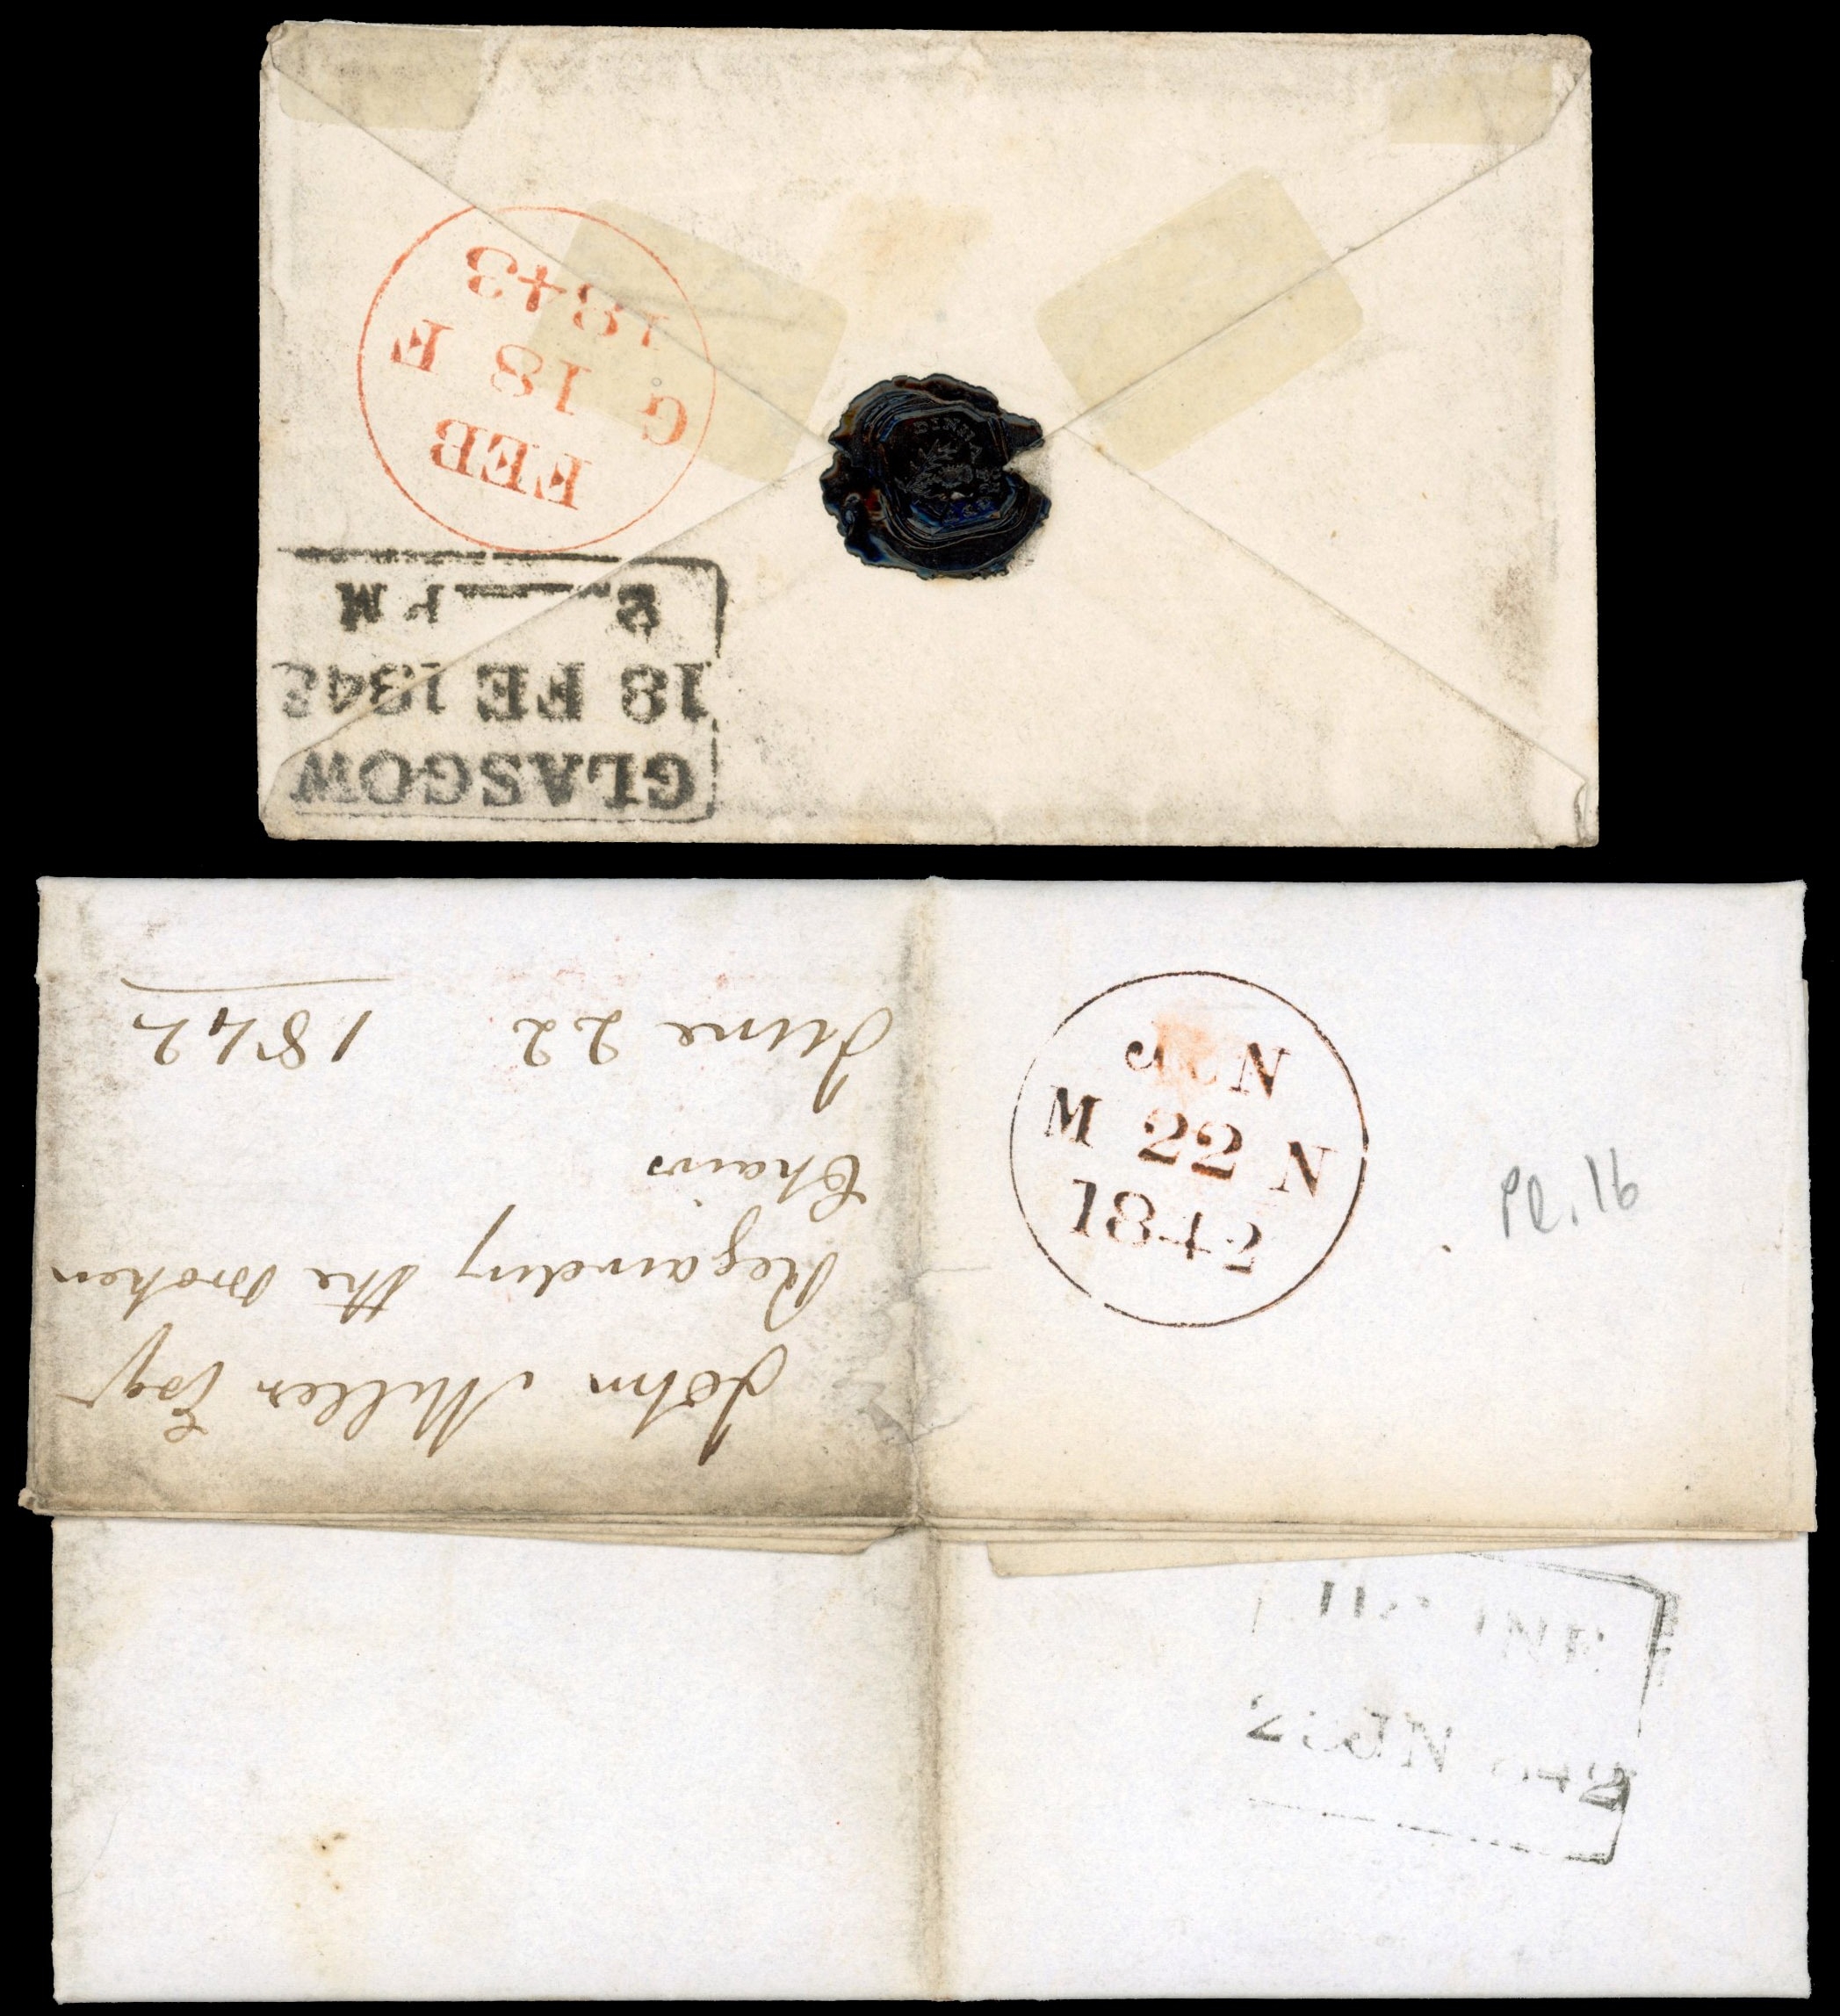 FEB
G 18 F
1843
GLASGOW
18 FE 1843
2 PM
John Miller Esqr
Regarding the broken
Chairs
June 22 1842
JUN
M 22 N
1842
Pl. 16
JN 1842